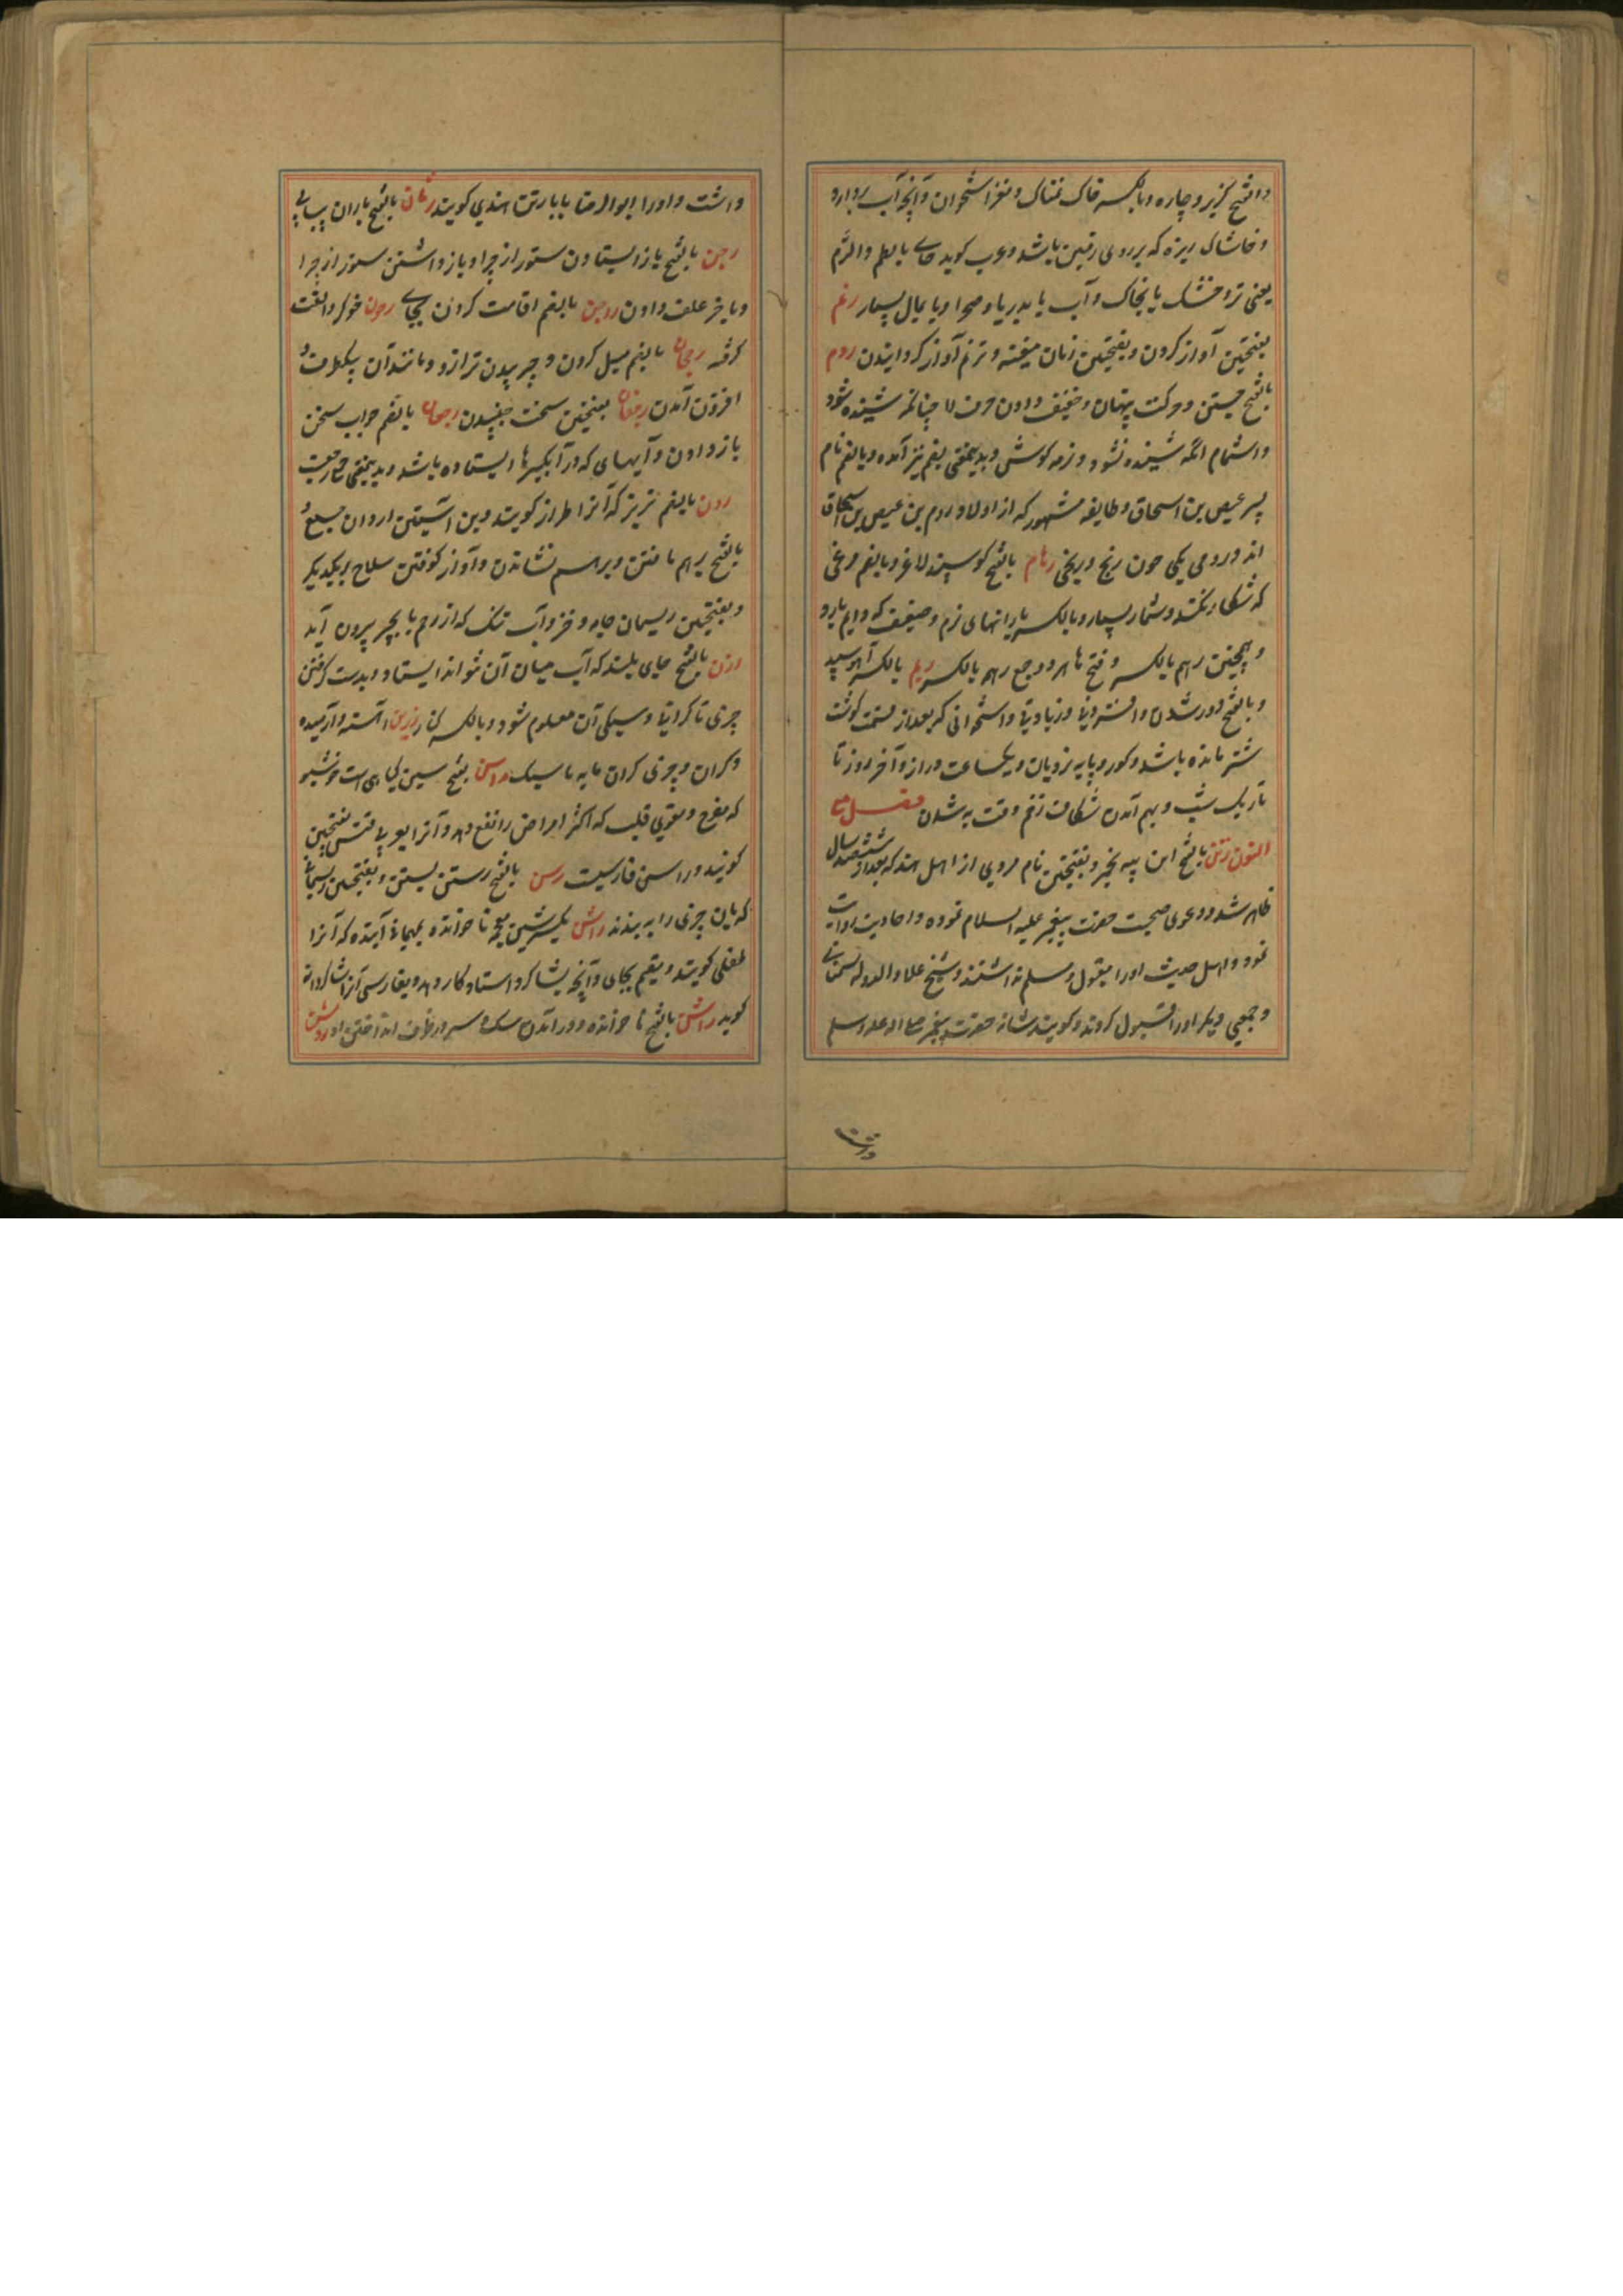 و بالفتح گزیر و چاره و بالکسر خاک نمناک و مغز استخوان و آنچه آب بردارد
و خاشاک ریزه که بر روی زمین باشد و عرب گوید جای بالطم والرم
یعنی تر و خشک یا بخاک و آب یا بدریا و صحرا و یا بمال بسیار رنم
بفتحتین آواز کردن و بفتحتین زنان مغنیه و ترنم آواز گردانیدن روم
بالفتح جستن و حرکت پنهان و خفیف دادن حرف لا چنانکه شنیده شود
و اشمام آنکه شنیده نشود و نرمه گوش و بدینمعنی بضم نیز آمده و بالضم نام
پسر عیص بن اسحاق و طایفه مشهور که از اولاد روم بن عیص بن اسحاق
اند و رومی یکی چون زنج و زنجی رهام بالفتح گوسپند لاغر و بالضم مرغی
که شکار نکند و شمار بسیار و بالکسر بارانهای نرم و ضعیف که دایم بارد
و همچنین رهم بالکسر و فتح ها هر دو جمع رهمه بالکسر ریم بالکسر آهو سپید
و بالفتح دور شدن و افزونی و زیادتی و استخوانی که بعد از قسمت گوشت
شتر مانده باشد و گور و پایه نردبان و یکساعت دراز و آخر روز تا
تاریک شب و بهم آمدن شکاف زخم وقت به شدن فصل مع
النون رتن بالفتح پیه بخمیر و بفتحتین نام مردی از اهل هند که بعد از ششصد سال
ظاهر شد و دعوی صحبت حضرت پیغمبر علیه السلام نموده و احادیث روایت
نمود و اهل حدیث او را مقبول و مسلم نداشتند و شیخ علاء الدوله سمنانی
و جمعی دیگر او را قبول کردند و گویند شانه حضرت پیغمبر صلی الله علیه وسلم
داشت و او را ابوالرضا بابا رتن هندی گویند رثان بالفتح باران پیاپی
رجن بالفتح باز ایستادن ستور از چرا و باز داشتن ستور از چرا
و بآخر علف دادن رجن بالضم اقامت کردن بجای رجون خوکر و الفت
گرفته رجحان بالضم میل کردن و چربیدن ترازو و مانند آن بیکطرف و
افزون آمدن رجفان بفتحتین سخت جنبیدن رجعان بالضم جواب سخن
باز دادن و آبهای که در آبگیرها ایستاده باشد و بدینمعنی جمع رجعت
ردن بالضم تریز که آنرا طراز گویند و بن آستین اردان جمع و
بالفتح برهم بافتن و برهم نشاندن و آواز کوفتن سلاح بریکدیگر
و بفتحتین ریسمان و خز و آب تنک که از رحم با بچه بیرون آید
رزن بالفتح جای بلند که آب میان آن تواند ایستاد و بدست گرفتن
چیزی تا گرانی و سبکی آن معلوم شود و بالکسر کنار رزین آهسته و آرمیده
و گران و چیزی گران مایه راسن بفتح سین گیاهی است خوشبو
که مفرح و مقوی قلب که اکثر امراض را نفع دهد و آنرا بعربی قنس بفتحتین
گویند و راسن فارسیست رسن بالفتح رستن بستن و بفتحتین ریسمانی
که بآن چیزی را به بندند راشن بکسر شین معجمه ناخوانده بمهمانی آینده که آنرا
طفیلی گویند و مقیم بجای و آنچه بشاگرد استاد کار دهد و بفارسی آنرا شاگردانه
گوید رشن بالفتح ناخوانده و در آمدن سگ و سر در ظرف انداختن او